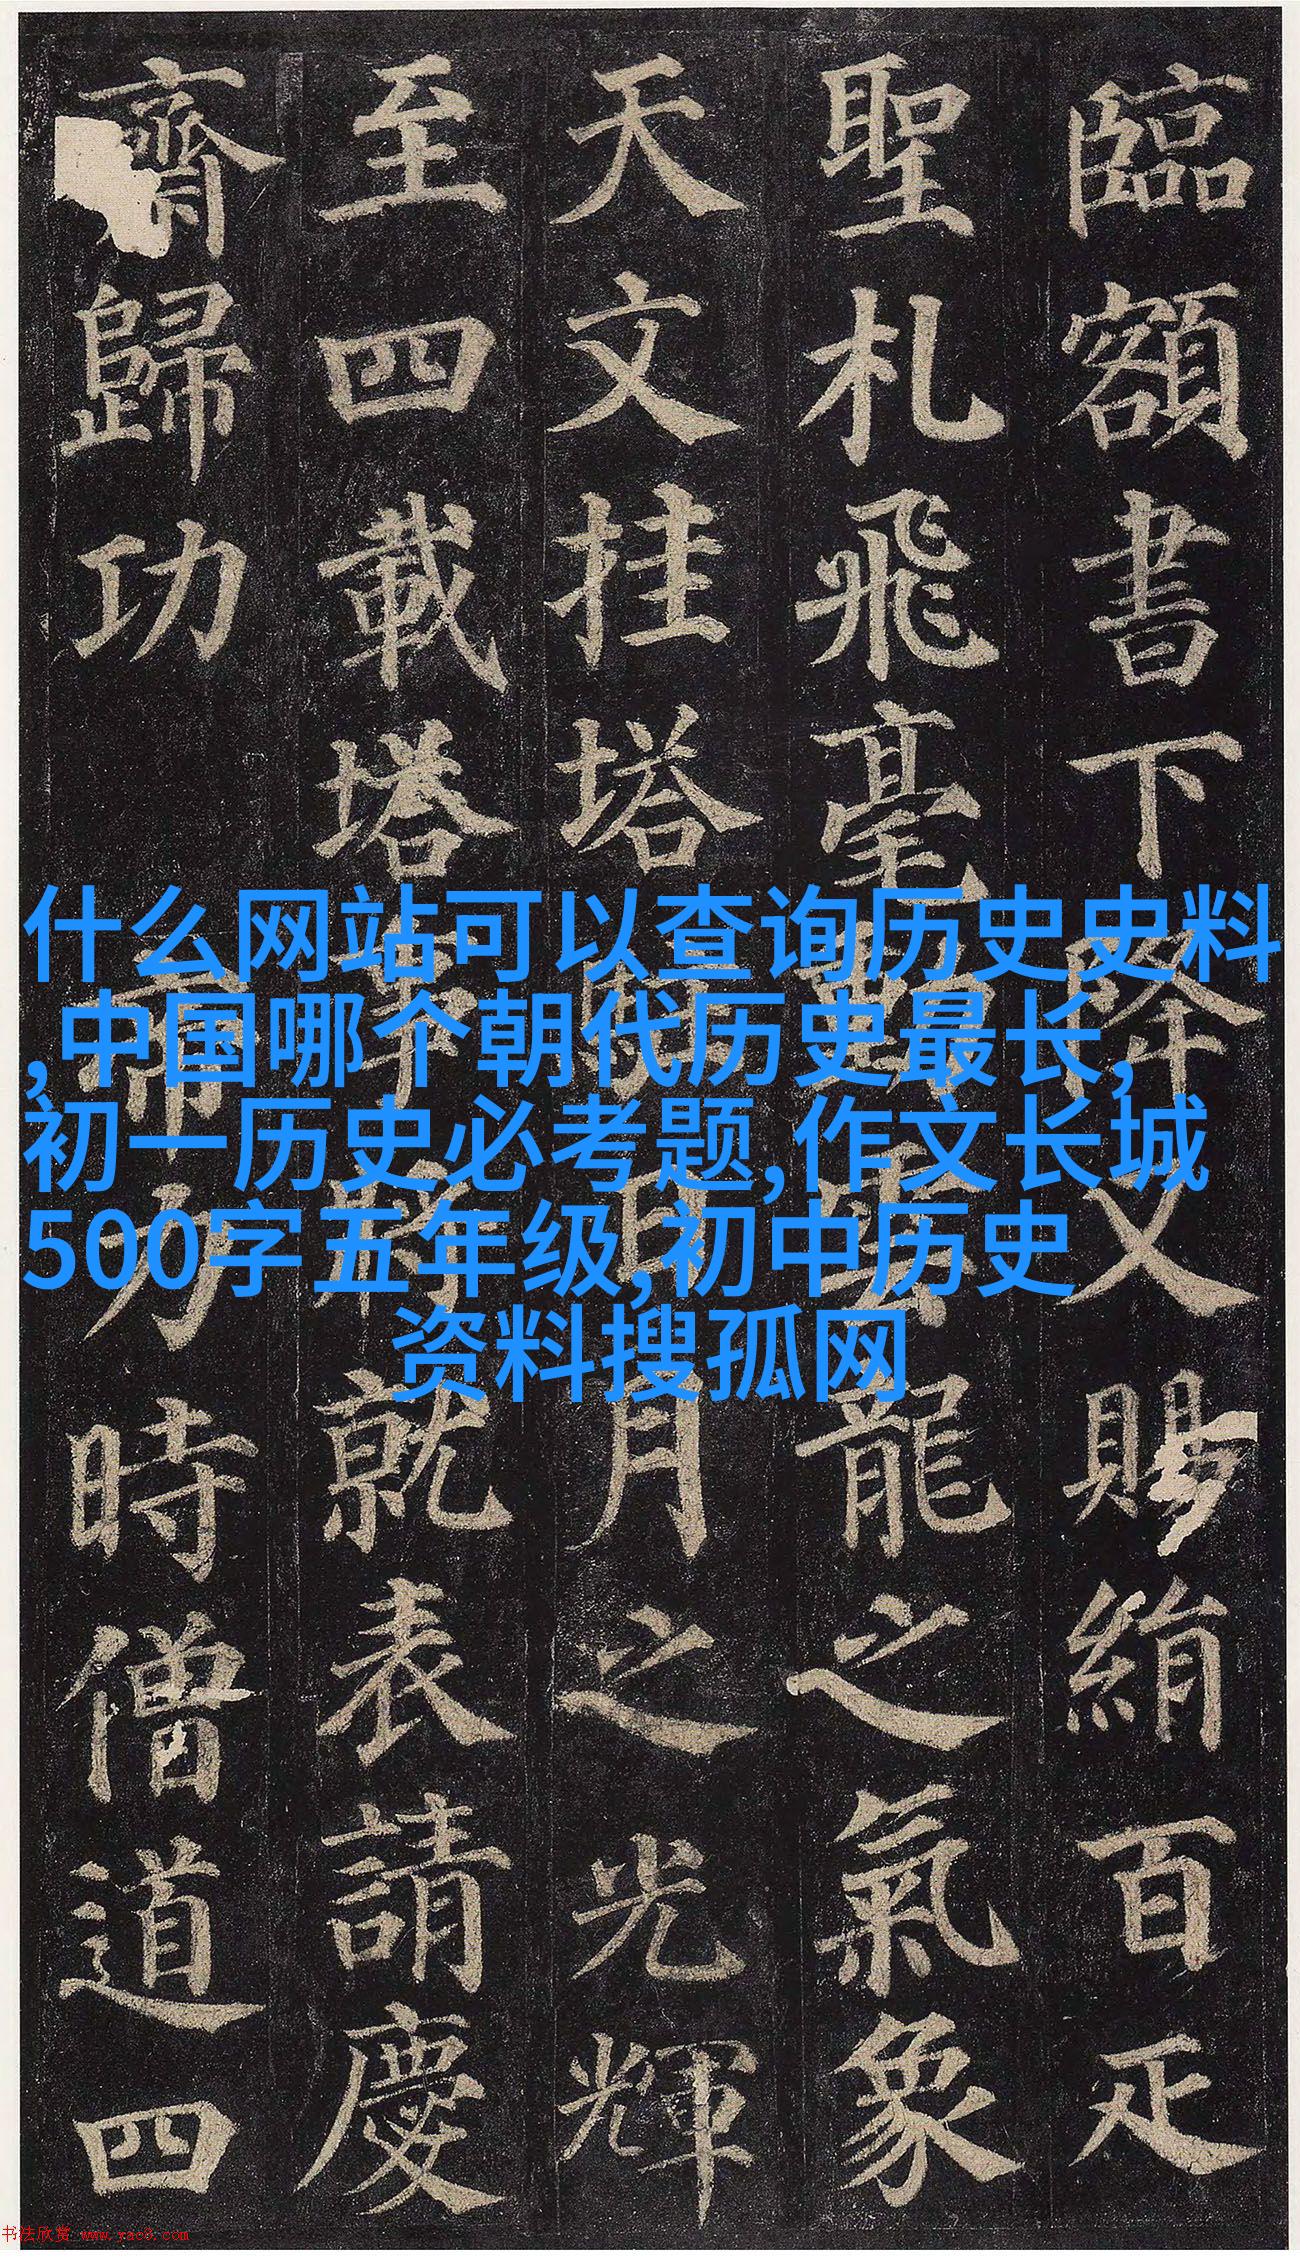 臨額書下降又賜絹百疋
聖札飛毫動雲龍之氣象
天文挂塔駐日月之光輝
至四載塔事將就表請慶
齋歸功 帝力時僧道四
什么网站可以查询历史史料
,中国哪个朝代历史最长,
初一历史必考题,作文长城
500字五年级,初中历史
资料搜孤网
书法欣赏 www.yac8.com